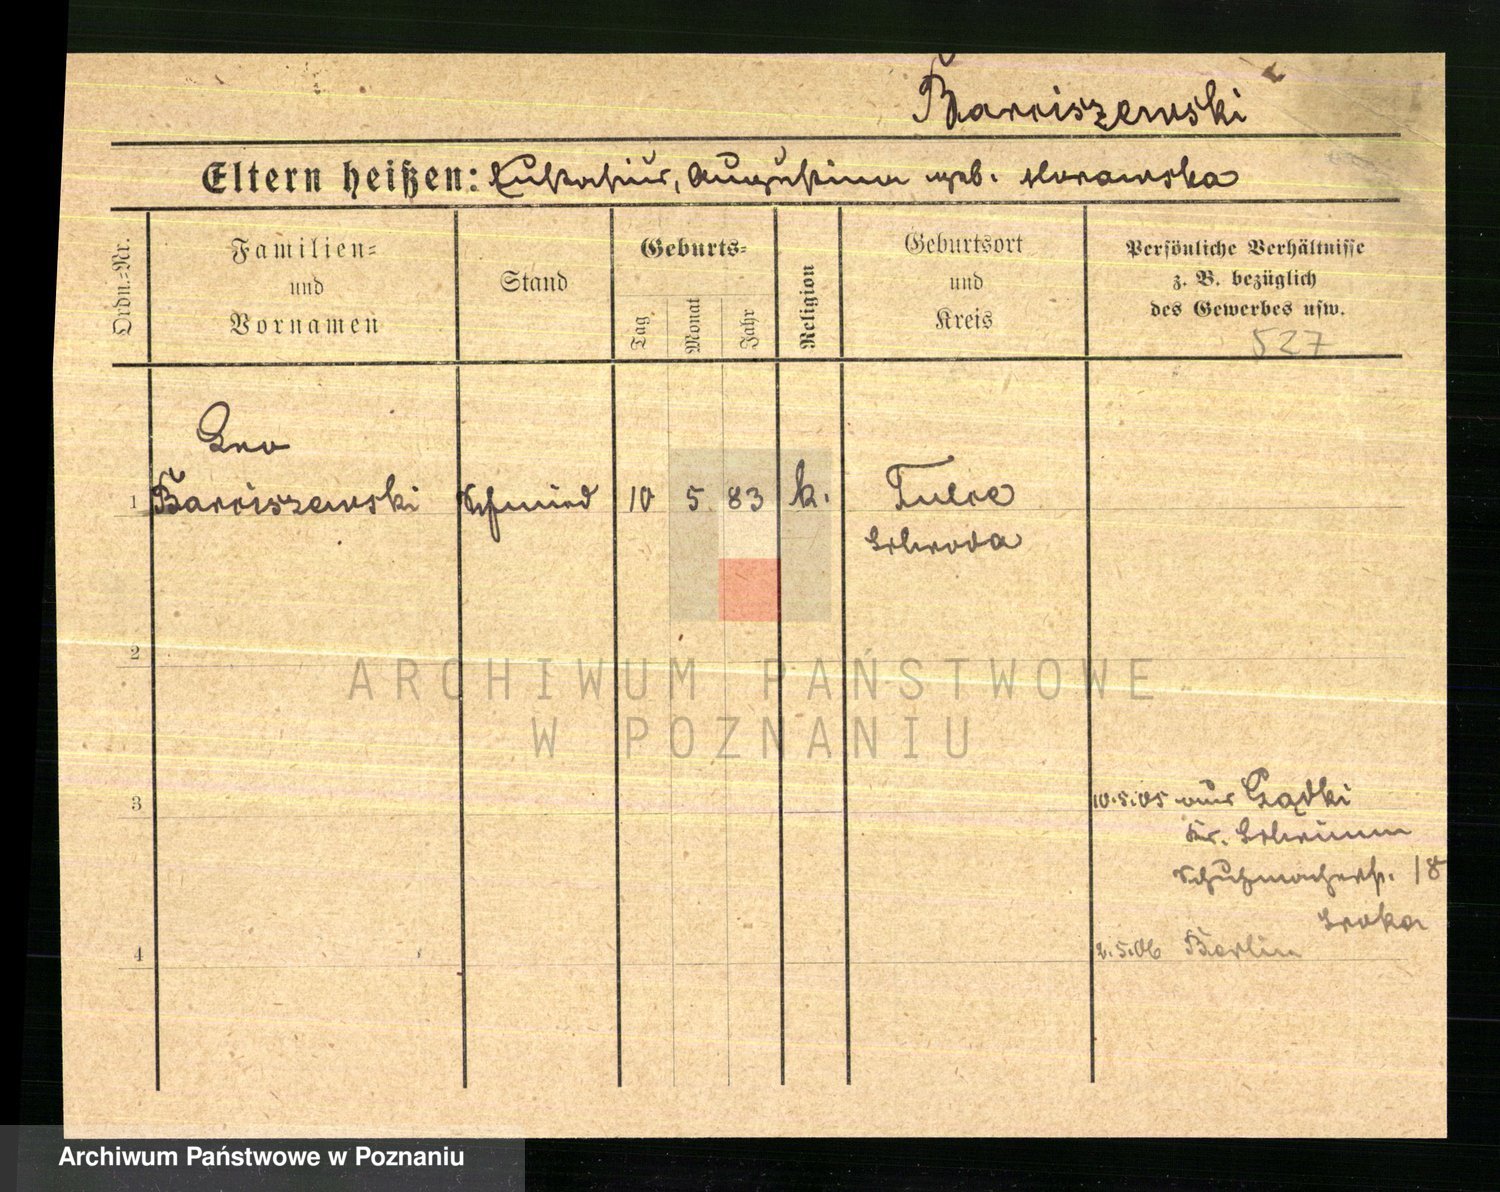 Barciszewski
Eltern heißen: Eustasius, Augustina geb. Morawska
Ordn.-Nr.
Familien-
und
Vornamen
Stand
Geburts-
Tag
Monat
Jahr
Religion
Geburtsort
und
Kreis
Persönliche Verhältnisse
z. B. bezüglich
des Gewerbes usw.
527
Leo
1 Barciszewski Schmied 10 5 83 k. Tulce
Schroda
2
ARCHIWUM PAŃSTWOWE
W POZNANIU
3 10.5.05 aus Gądki
Kr. Schrimm
Schuhmacherstr. 18
4 2.5.06 Berlin
Archiwum Państwowe w Poznaniu